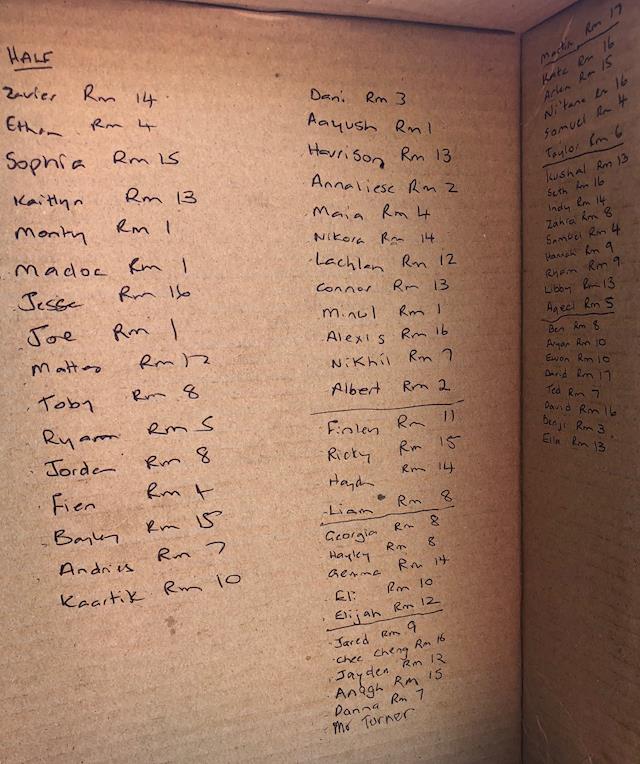 HALF
Zavier Rm 14
Ethan Rm 4
Sophia Rm 15
Kaitlyn Rm 13
Monty Rm 1
Madoc Rm 1
Jesse Rm 16
Joe Rm 1
Matteo Rm 12
Toby Rm 8
Ryann Rm 5
Jordan Rm 8
Fien Rm
Bayley Rm 15
Andries Rm 7
Kaartik Rm 10
Dani Rm 3
Aayush Rm 1
Harrison Rm 13
Annaliese Rm 2
Maia Rm 4
Nikora Rm 14
Lachlan Rm 12
Connor Rm 13
Minul Rm 1
Alexis Rm 16
Nikhil Rm 7
Albert Rm 2
Finley Rm 11
Ricky Rm 15
Haydn Rm 14
Liam Rm 8
Georgia Rm 8
Hayley Rm 8
Gemma Rm 14
Eli Rm 10
Elijah Rm 12
Jared Rm 9
Chee Cheng Rm 16
Jayden Rm 12
Anagh Rm 15
Danna Rm 7
Mr Turner
Martin Rm 17
Kate Rm 16
Rm 15
Rm 16
Samuel Rm 4
Taylor Rm 6
Kushal Rm 13
Seth Rm 16
Indy Rm 14
Zahra Rm 8
Samuel Rm 4
Hannah Rm 9
Ryan Rm 9
Libby Rm 13
Aqeel Rm 5
Ben Rm 8
Aryan Rm 10
Ewon Rm 10
David Rm 17
Ted Rm 7
David Rm 16
Benji Rm 3
Ella Rm 13